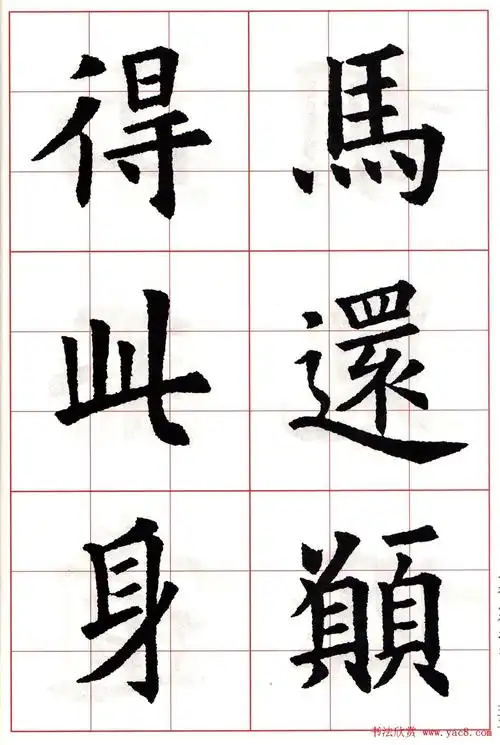 馬還願
得此身
书法欣赏 www.yac8.com